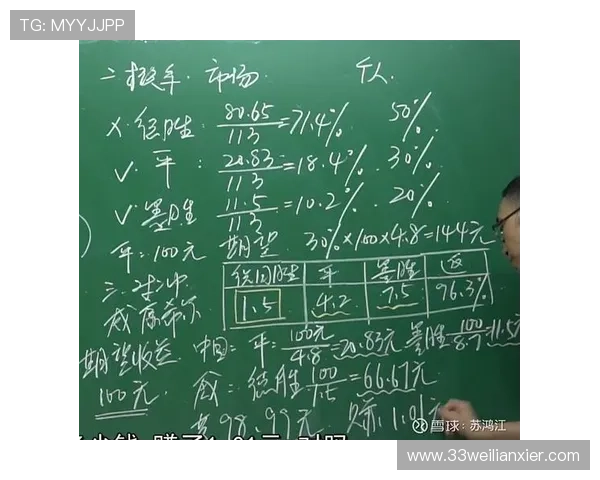 TG: MYYJJPP
二 投手. 市场 个人
× 德胜: 80.65/113=71.4% 50%
✓ 平: 20.83/113=18.4% 30%
✓ 墨胜 11.5/113=10.2% 20%
平=100元 期望 30%×100×4.8=144元
三.对冲 德国胜 平 墨胜 返
1.5 4.2 7.5 96.3%
期望收益 中国: 平: 100元/4.8=20.83元 墨胜 100/8.7=11.5元
100元 德胜 100/1.5=66.67元
98.99元 赚1.01元
雪球:苏鸿江
www.33weilianxier.com